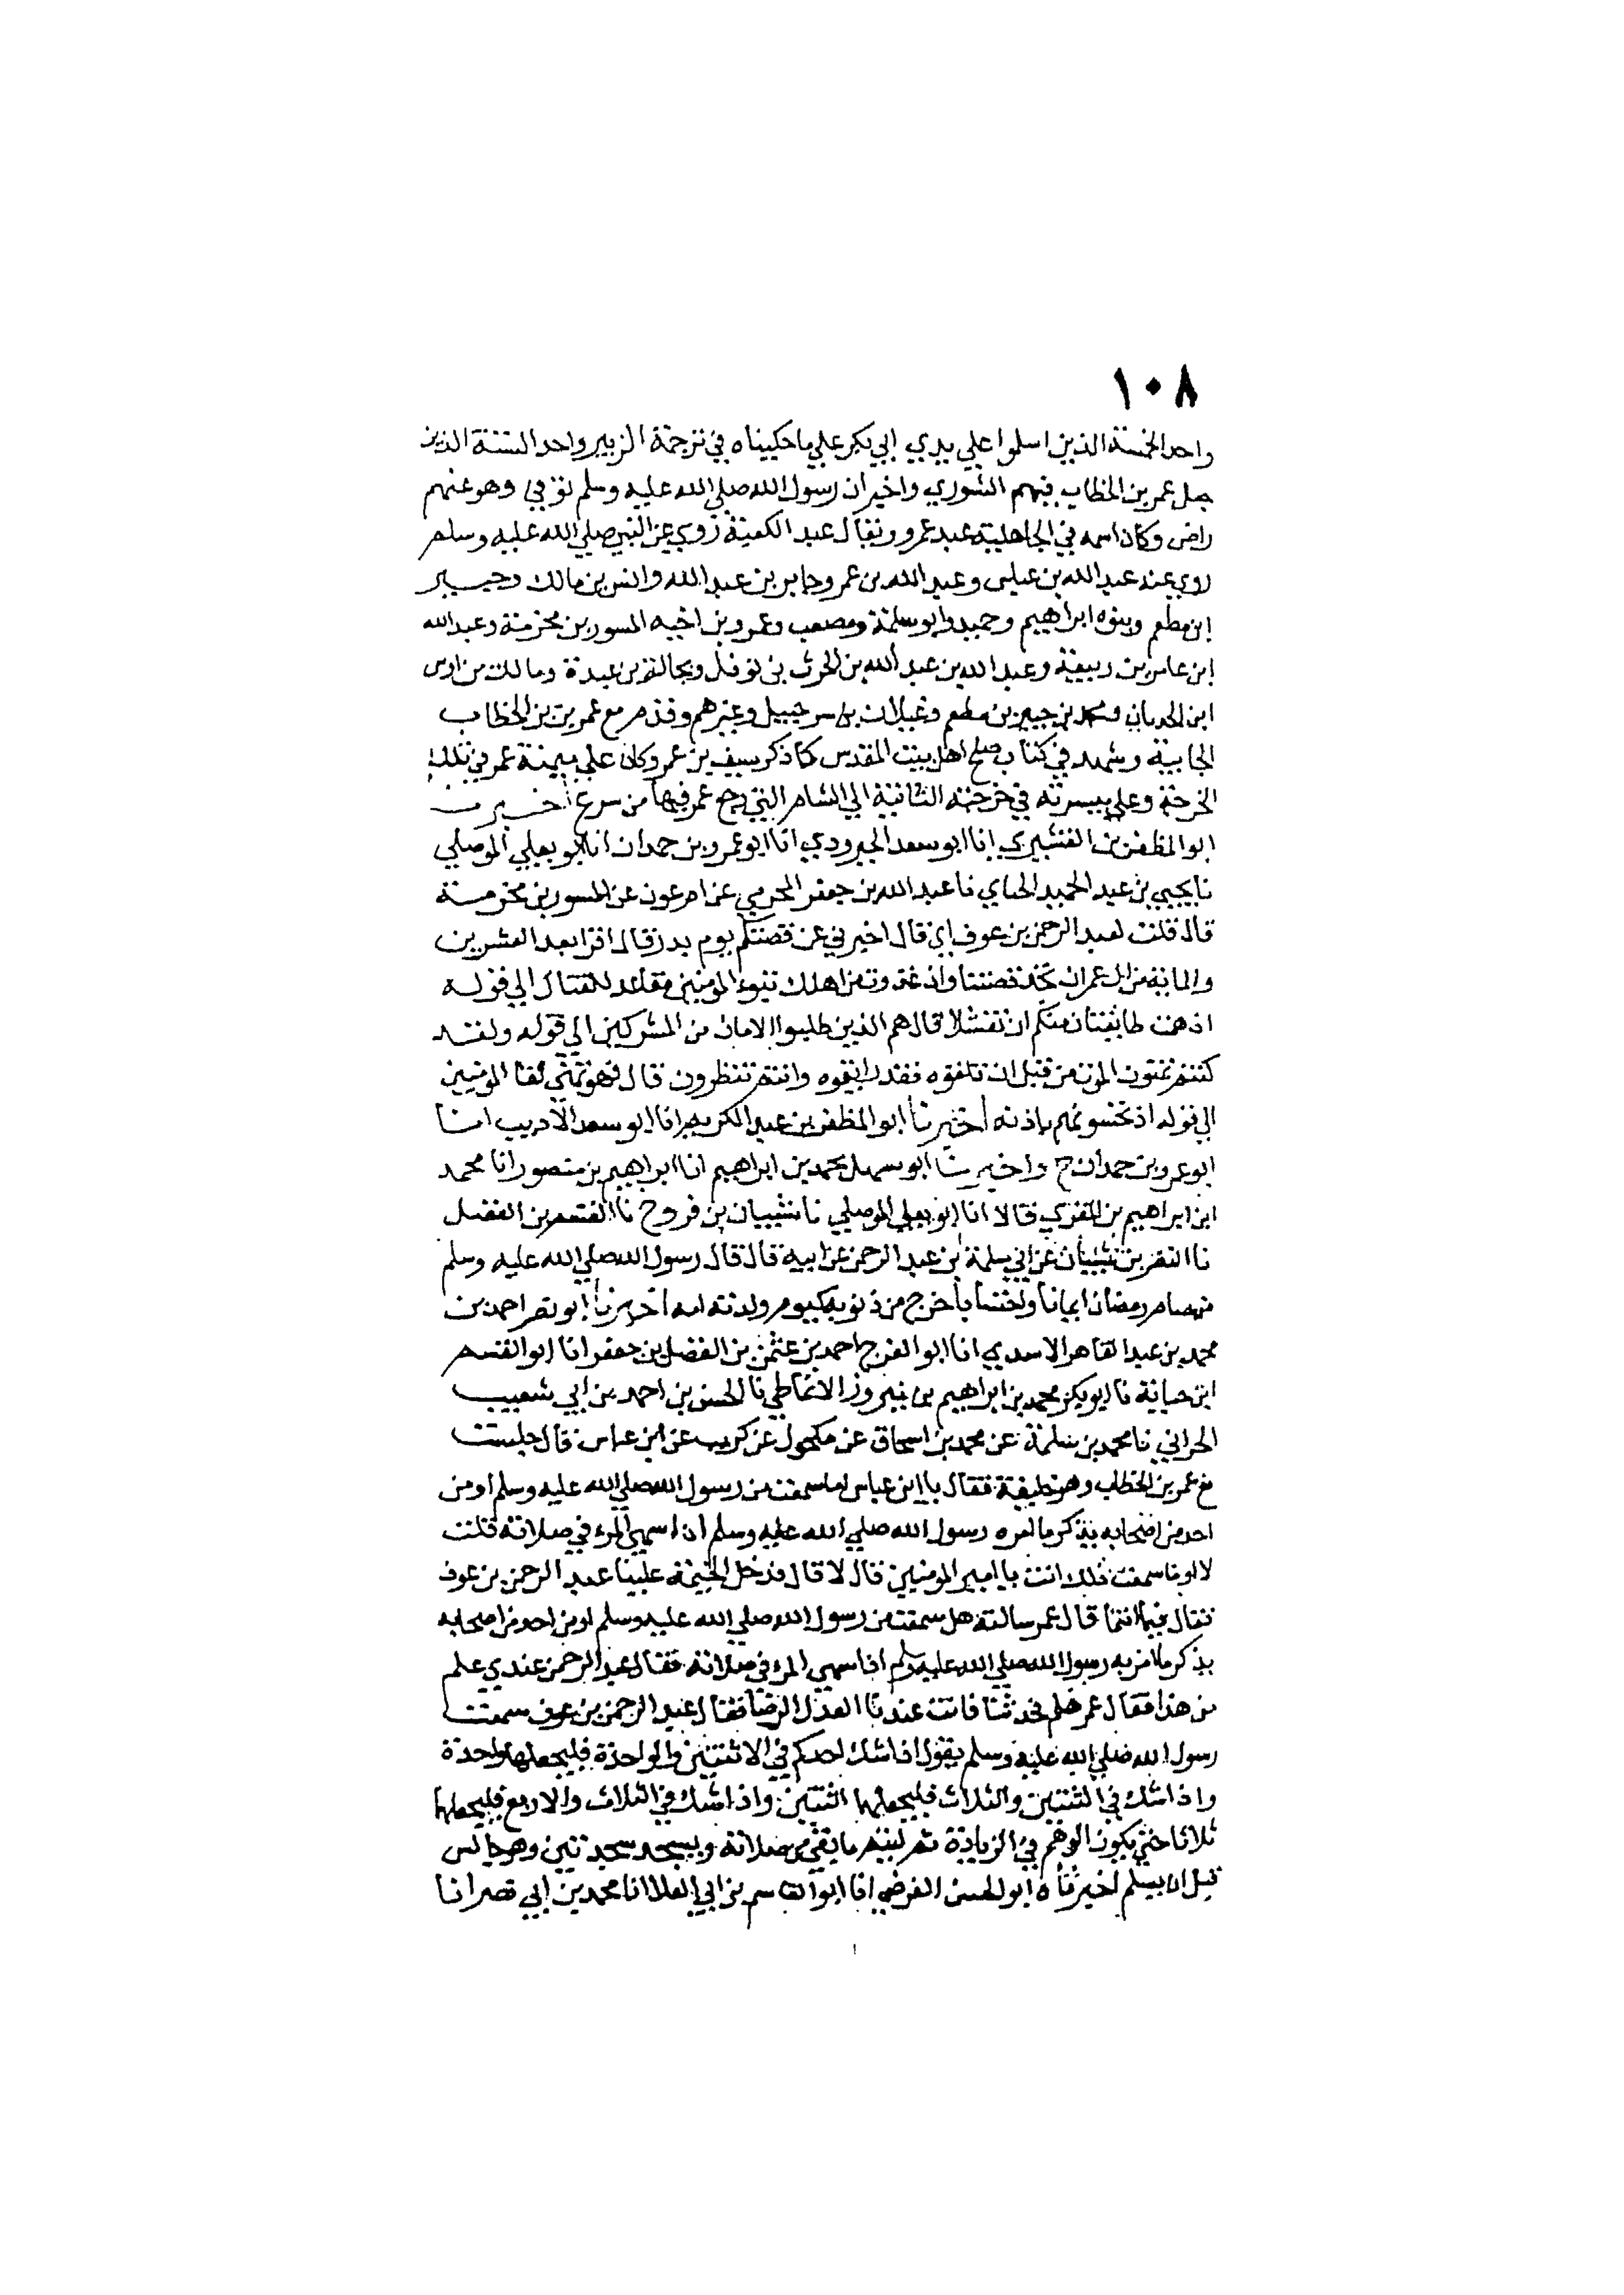 ١٠٨
واحد الخمسة الذين اسلموا علي يدي ابي بكر علي ما حكيناه في ترجمة الزبير واحد الستة الذين
جعل عمر بن الخطاب فيهم الشوري واخبر ان رسول الله صلي الله عليه وسلم توفي وهو عنهم
راض وكان اسمه في الجاهلية عبد عمرو ويقال عبد الكعبة روي عن النبي صلي الله عليه وسلم
روي عنه عبد الله بن عباس وعبد الله بن عمر وجابر بن عبد الله وانس بن مالك وجبير
ابن مطعم وبنوه ابراهيم وحميد وابو سلمة ومصعب وعمرو بن اخيه المسور بن مخرمة وعبد الله
ابن عامر بن ربيعة وعبد الله بن عبد الله بن الحرث بن نوفل وبجالة بن عبدة ومالك بن اوس
ابن الحدثان ومحمد بن جبير بن مطعم وغيلان بن سرحبيل وغيرهم وقدم مع عمر بن الخطاب
الجابية وشهد في كتاب صلح اهل بيت المقدس كما ذكر سيف بن عمر وكان علي ميمنة عمر في تلك
الخرجة وعلي ميسرته في خرجته الثانية الي الشام التي رجع عمر فيها من سرغ اخبرنا
ابو المظفر بن القشيري انا ابو سعد الجنرودي انا ابو عمرو بن حمدان انا ابو يعلي الموصلي
نا يحيي بن عبد الحميد الحماني نا عبد الله بن جعفر المخرمي عن ام عون عن المسور بن مخرمة
قال قلت لعبد الرحمن بن عوف اي خال اخبرني عن قصتكم يوم بدر قال اقرا بعد العشرين
والمائة من ال عمران تجد قصتنا واذ غدوت من اهلك تبوء المومنين مقاعد للقتال الي قوله
اذ همت طايفتان منكم ان تفشلا قال هم الذين طلبوا الامان من المشركين الي قوله ولقد
كنتم تمنون الموت من قبل ان تلقوه فقد رايتموه وانتم تنظرون قال فهو تمني لقا المومنين
الي قوله اذ تحسونهم باذنه اخبرنا ابو المظفر بن عبد الكريم انا ابو سعد الاديب انا
ابو عمرو بن حمدان ح واخبرنا ابو سهل محمد بن ابراهيم انا ابراهيم بن منصور انا محمد
ابن ابراهيم بن المقري قالا انا ابو يعلي الموصلي نا شيبان بن فروخ نا القسم بن الفضل
نا النضر بن شيبان عن ابي سلمة بن عبد الرحمن عن ابيه قال قال رسول الله صلي الله عليه وسلم
من صام رمضان ايمانا واحتسابا خرج من ذنوبه كيوم ولدته امه اخبرنا ابو نصر احمد بن
محمد بن عبد القاهر الاسدي انا ابو الفرج احمد بن عثمن بن الفضل بن جعفر انا ابو القسم
ابن حبابة نا ابو بكر محمد بن ابراهيم بن نيروز الانماطي نا الحسن بن احمد بن ابي شعيب
الحراني نا محمد بن سلمة عن محمد بن اسحاق عن مكحول عن كريب عن ابن عباس قال جلست
مع عمر بن الخطاب وهو خليفة فقال يا ابن عباس اما سمعت من رسول الله صلي الله عليه وسلم او من
احد من اصحابه يذكر ما امر به رسول الله صلي الله عليه وسلم اذا سهي المرء في صلاته قلت
لا او ما سمعت ذلك انت يا امير المومنين قال لا قال فدخل علينا عبد الرحمن بن عوف
فقال فيما انتما قال عمر سالته هل سمعت من رسول الله صلي الله عليه وسلم او من احد من اصحابه
يذكر ما امر به رسول الله صلي الله عليه وسلم اذا سهي المرء في صلاته فقال عبد الرحمن عندي علم
من هذا فقال عمر هلم فحدثنا فانت عندنا العدل الرضا فقال عبد الرحمن بن عوف سمعت
رسول الله صلي الله عليه وسلم يقول اذا شك احدكم في الاثنتين والواحدة فليجعلها واحدة
واذا شك في الثنتين والثلاث فليجعلها اثنتين واذا شك في الثلاث والاربع فليجعلها
ثلاثا حتي يكون الوهم في الزيادة ثم ليتم ما بقي من صلاته ويسجد سجدتين وهو جالس
قبل ان يسلم اخبرناه ابو الحسن الفرضي انا ابو القاسم بن ابي العلا انا محمد بن ابي نصر انا